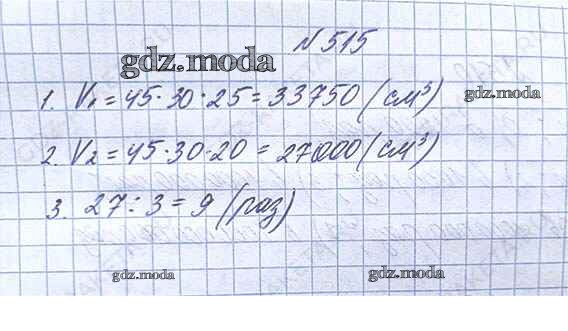 № 515
gdz.moda
1. V₁ = 45·30·25 = 33750 (см³)
gdz.moda
2. V₂ = 45·30·20 = 27000 (см³)
3. 27 : 3 = 9 (раз)
gdz.moda
gdz.moda